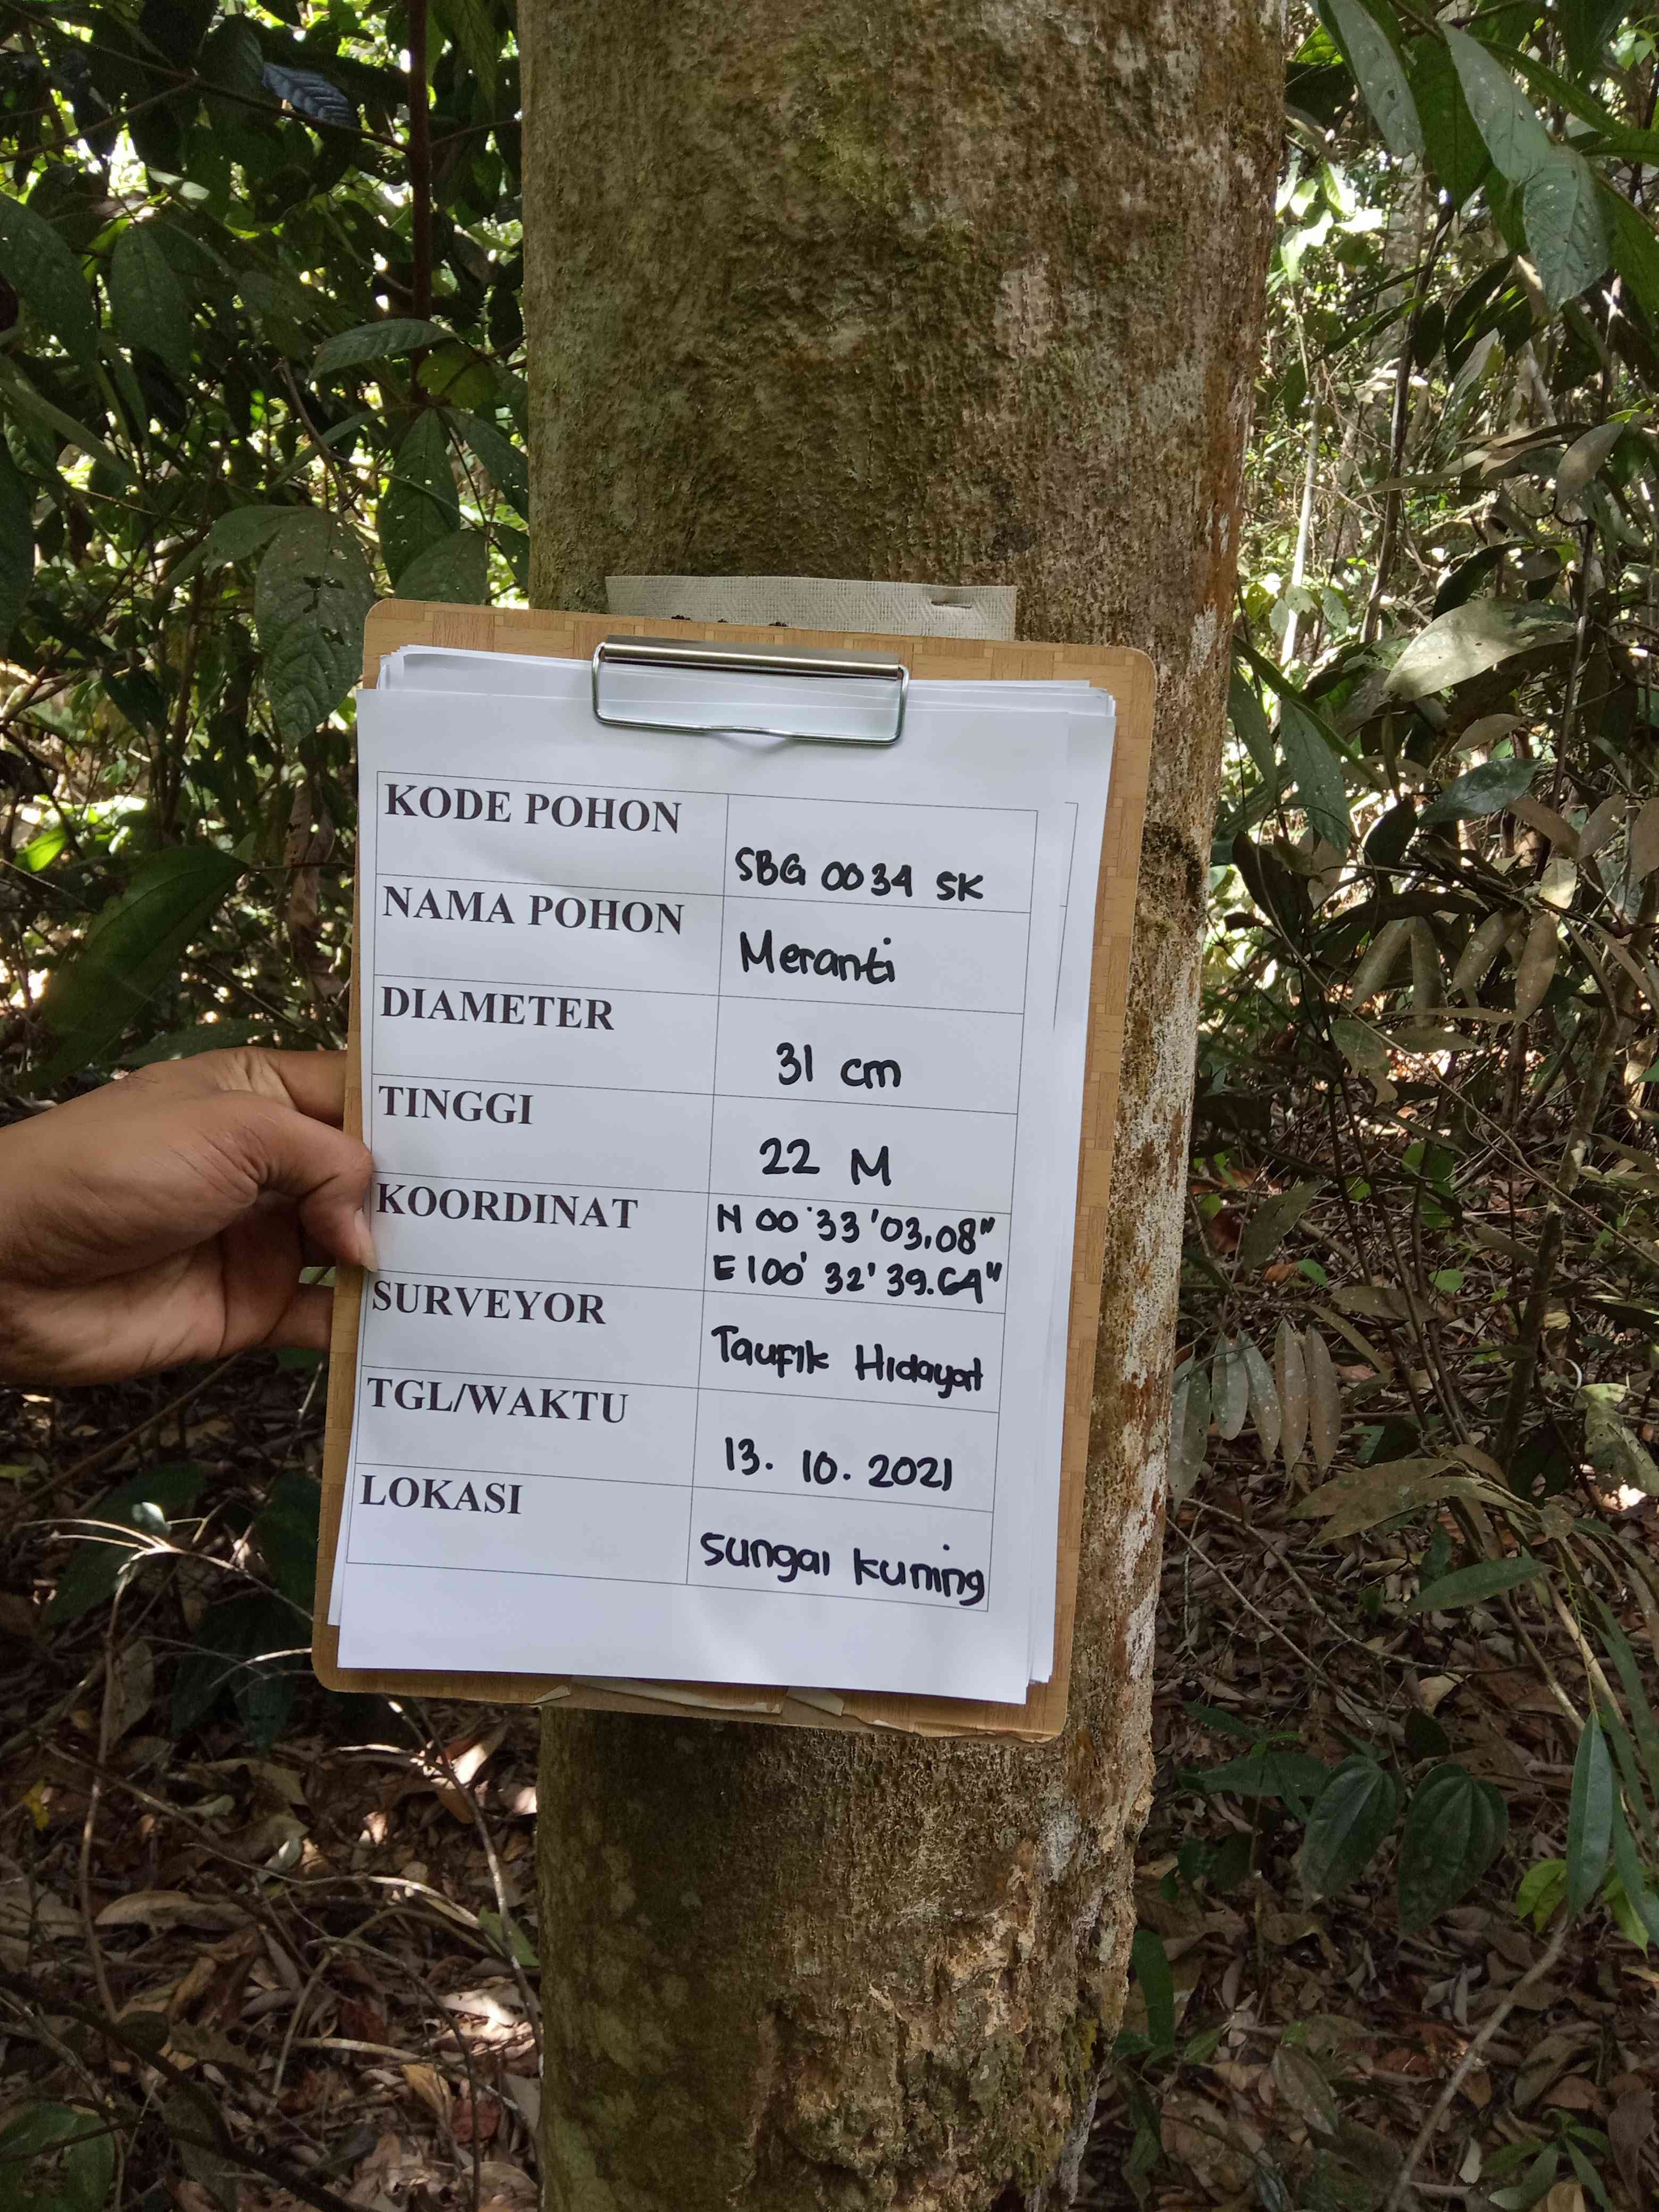 KODE POHON
SBG 0034 SK
NAMA POHON
Meranti
DIAMETER
31 cm
TINGGI
22 M
KOORDINAT
N 00°33'03,08"
E 100° 32' 39.64"
SURVEYOR
Taufik Hidayat
TGL/WAKTU
13. 10. 2021
LOKASI
Sungai kuning